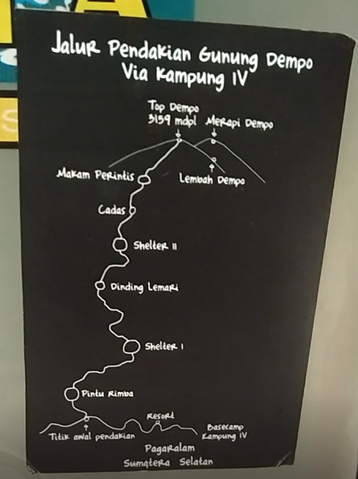 Jalur Pendakian Gunung Dempo
Via Kampung IV
Top Dempo
3159 mdpl
Merapi Dempo
Makam Perintis
Lembah Dempo
Cadas
Shelter II
Dinding Lemari
Shelter I
Pintu Rimba
Resort
Titik awal pendakian
Basecamp
Kampung IV
Pagaralam
Sumatera Selatan